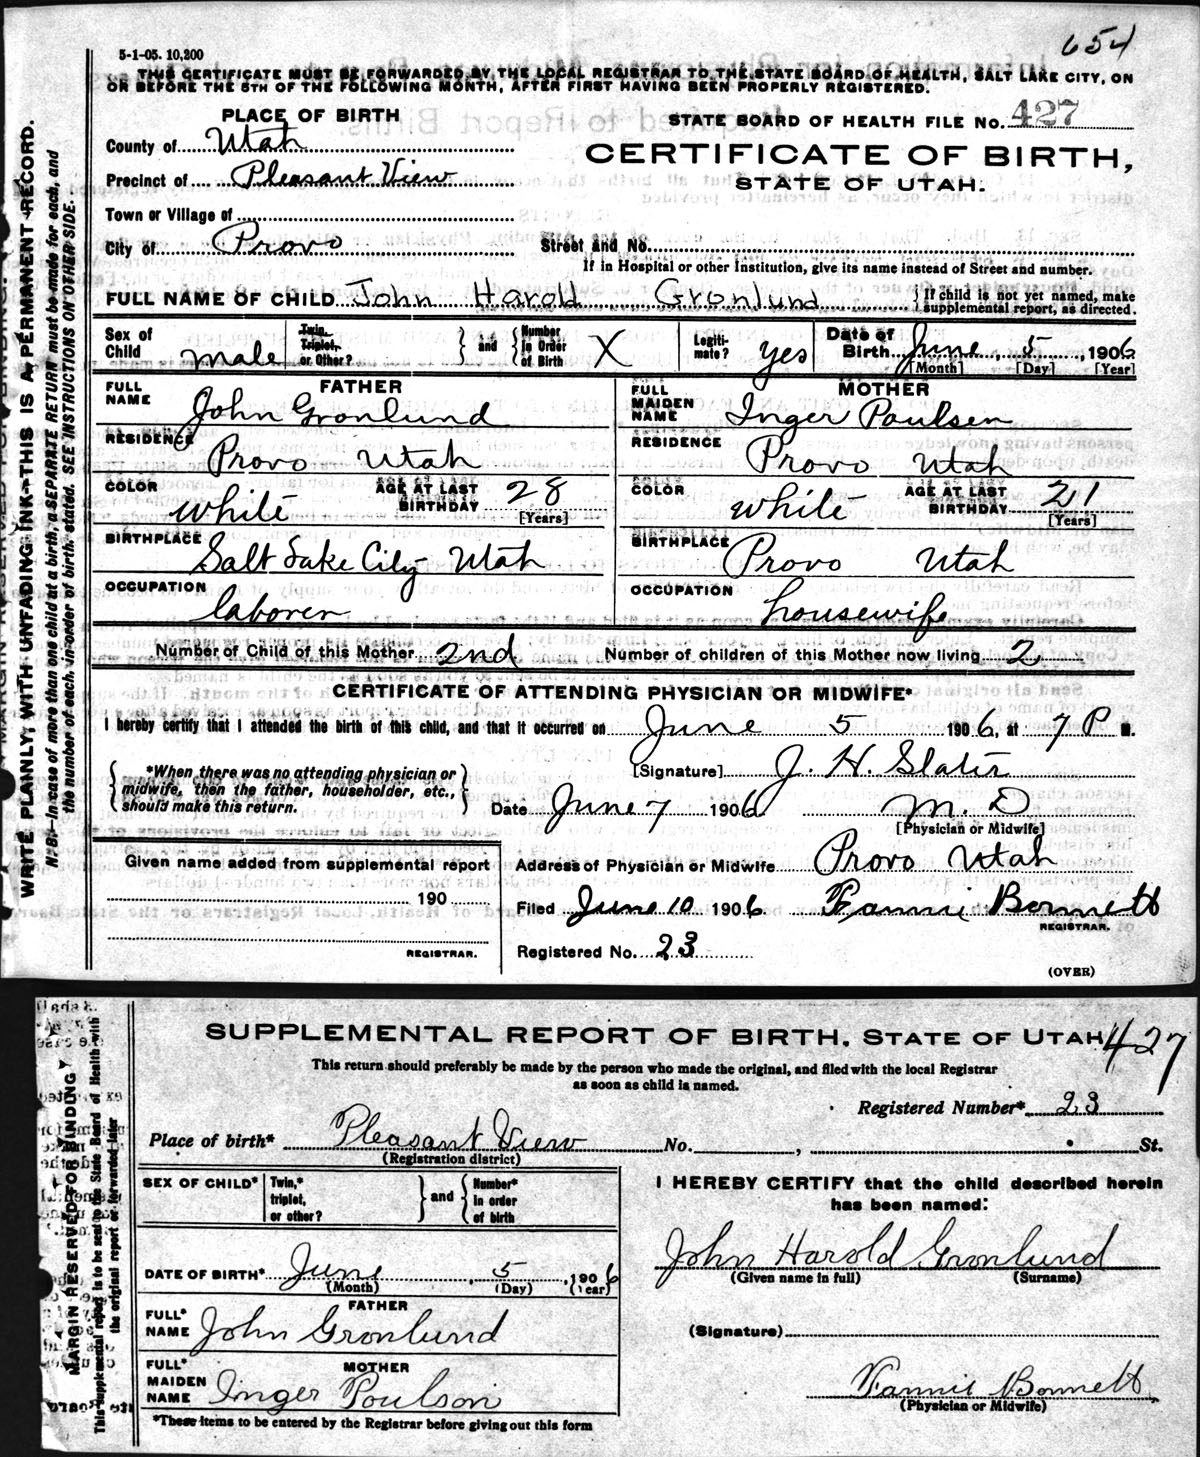 654
5-1-05. 10,200
THIS CERTIFICATE MUST BE FORWARDED BY THE LOCAL REGISTRAR TO THE STATE BOARD OF HEALTH, SALT LAKE CITY, ON
OR BEFORE THE 5TH OF THE FOLLOWING MONTH, AFTER FIRST HAVING BEEN PROPERLY REGISTERED.
PLACE OF BIRTH
STATE BOARD OF HEALTH FILE No. 427
County of Utah
CERTIFICATE OF BIRTH,
STATE OF UTAH.
Precinct of Pleasant View
Town or Village of
City of Provo
Street and No.
If in Hospital or other Institution, give its name instead of Street and number.
FULL NAME OF CHILD John Harold Gronlund } If child is not yet named, make supplemental report, as directed.
Sex of Child male Twin, Triplet, or Other? } and { Number in Order of Birth X Legiti-mate? yes Date of Birth June 5 1906
[Month] [Day] [Year]
FATHER
FULL NAME John Gronlund
RESIDENCE Provo Utah
COLOR white AGE AT LAST BIRTHDAY 28
[Years]
BIRTHPLACE Salt Lake City Utah
OCCUPATION laborer
MOTHER
FULL MAIDEN NAME Inger Paulsen
RESIDENCE Provo Utah
COLOR white AGE AT LAST BIRTHDAY 21
[Years]
BIRTHPLACE Provo Utah
OCCUPATION housewife
Number of Child of this Mother 2nd Number of children of this Mother now living 2
CERTIFICATE OF ATTENDING PHYSICIAN OR MIDWIFE*
I hereby certify that I attended the birth of this child, and that it occurred on June 5 1906, at 7 P M.
{ *When there was no attending physician or midwife, then the father, householder, etc., should make this return. }
[Signature] J. H. Slater
Date June 7 1906 M. D
[Physician or Midwife]
Given name added from supplemental report
190
REGISTRAR.
Address of Physician or Midwife Provo Utah
Filed June 10 1906 Fannie Bonnett
REGISTRAR.
Registered No. 23
(OVER)
WRITE PLAINLY, WITH UNFADING INK—THIS IS A PERMANENT RECORD.
N. B.—In case of more than one child at a birth, a SEPARATE RETURN must be made for each, and
the number of each, in order of birth, stated. SEE INSTRUCTIONS ON OTHER SIDE.
SUPPLEMENTAL REPORT OF BIRTH, STATE OF UTAH 427
This return should preferably be made by the person who made the original, and filed with the local Registrar
as soon as child is named.
Registered Number* 23
Place of birth* Pleasant View No. , St.
(Registration district)
SEX OF CHILD* Twin,* triplet, or other? } and { Number* in order of birth
DATE OF BIRTH* June 5 1906
(Month) (Day) (Year)
FATHER
FULL* NAME John Gronlund
MOTHER
FULL* MAIDEN NAME Inger Poulson
*These items to be entered by the Registrar before giving out this form
I HEREBY CERTIFY that the child described herein
has been named:
John Harold Gronlund
(Given name in full) (Surname)
(Signature)
Fannie Bonnett
(Physician or Midwife)
MARGIN RESERVED FOR BINDING
This supplemental report is to be sent to the State Board of Health with
the original report or forwarded later